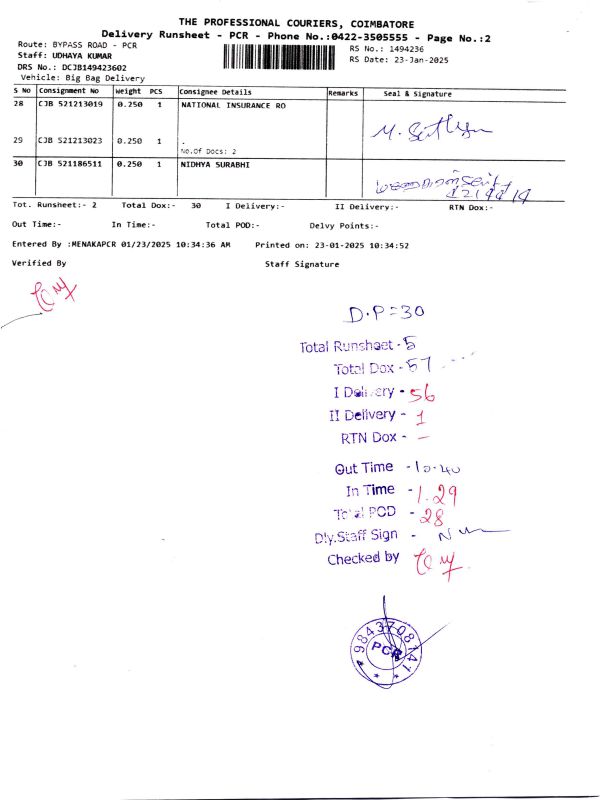 THE PROFESSIONAL COURIERS, COIMBATORE
Delivery Runsheet - PCR - Phone No.:0422-3505555 - Page No.:2
Route: BYPASS ROAD - PCR
RS No.: 1494236
Staff: UDHAYA KUMAR
RS Date: 23-Jan-2025
DRS No.: DCJB149423602
Vehicle: Big Bag Delivery
S No Consignment No Weight PCS Consignee Details Remarks Seal & Signature
28 CJB 521213019 0.250 1 NATIONAL INSURANCE RO
29 CJB 521213023 0.250 1 .
No.Of Docs: 2
30 CJB 521186511 0.250 1 NIDHYA SURABHI
Tot. Runsheet:- 2 Total Dox:- 30 I Delivery:- II Delivery:- RTN Dox:-
Out Time:- In Time:- Total POD:- Delvy Points:-
Entered By :MENAKAPCR 01/23/2025 10:34:36 AM Printed on: 23-01-2025 10:34:52
Verified By Staff Signature
D.P=30
Total Runsheet - 5
Total Dox - 57
I Delivery - 56
II Delivery - 1
RTN Dox - -
Out Time - 10.40
In Time - 1.29
Total POD - 28
Dly.Staff Sign -
Checked by
9843708141
PCR